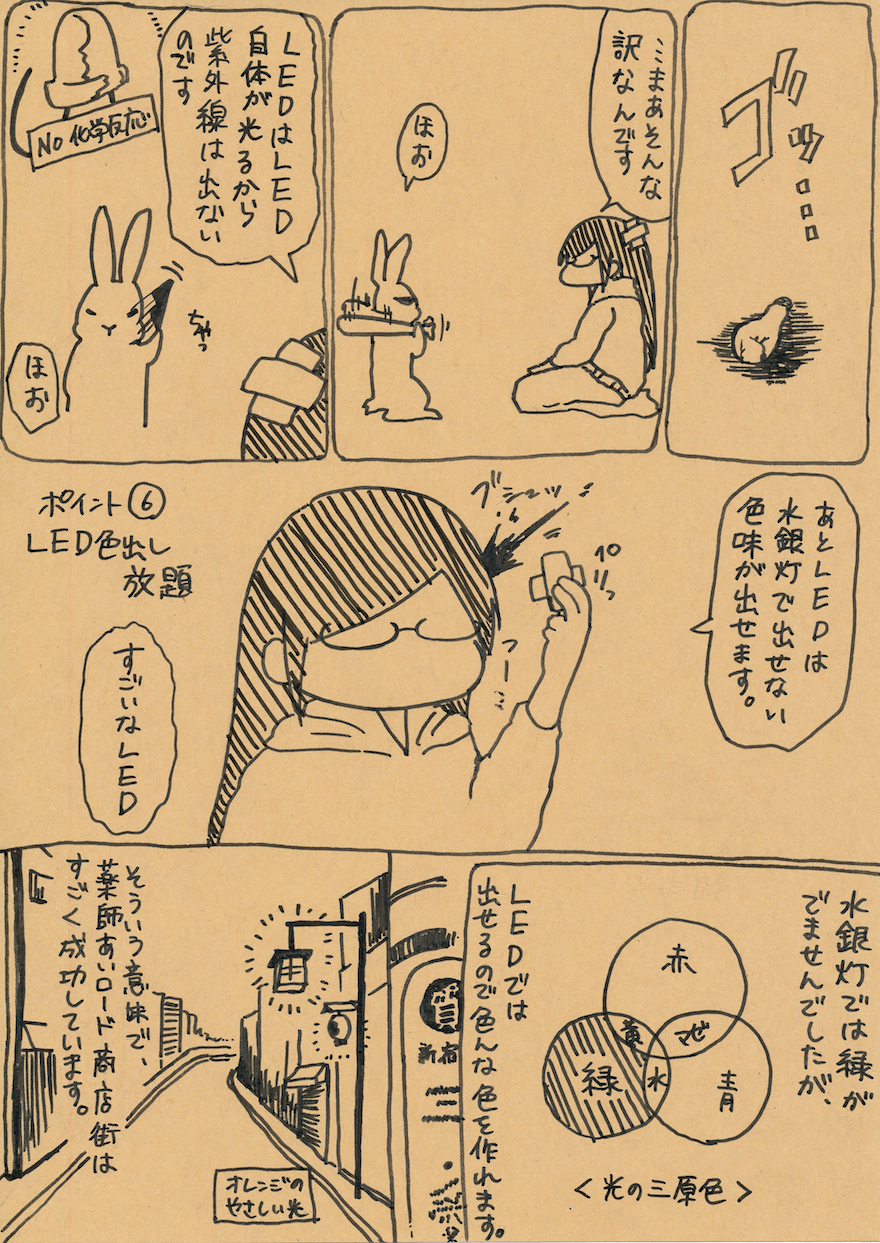 ゴッ
ゴッ...
...まあそんな
訳なんです
ほお
LEDはLED
自体が光るから
紫外線は出ない
のです
No 化学反応
ちゃっ
ほお
あとLEDは
水銀灯で出せない
色味が出せます。
ペリっ
ブシーッ
フー…
ポイント⑥
LED色出し
放題
すごいなLED
水銀灯では緑が
でませんでしたが、
赤
黄
マゼ
緑
水
青
<光の三原色>
LEDでは
出せるので色んな色を作れます。
新宿
そういう意味で、
薬師あいロード商店街は
すごく成功しています。
オレンジの
やさしい光